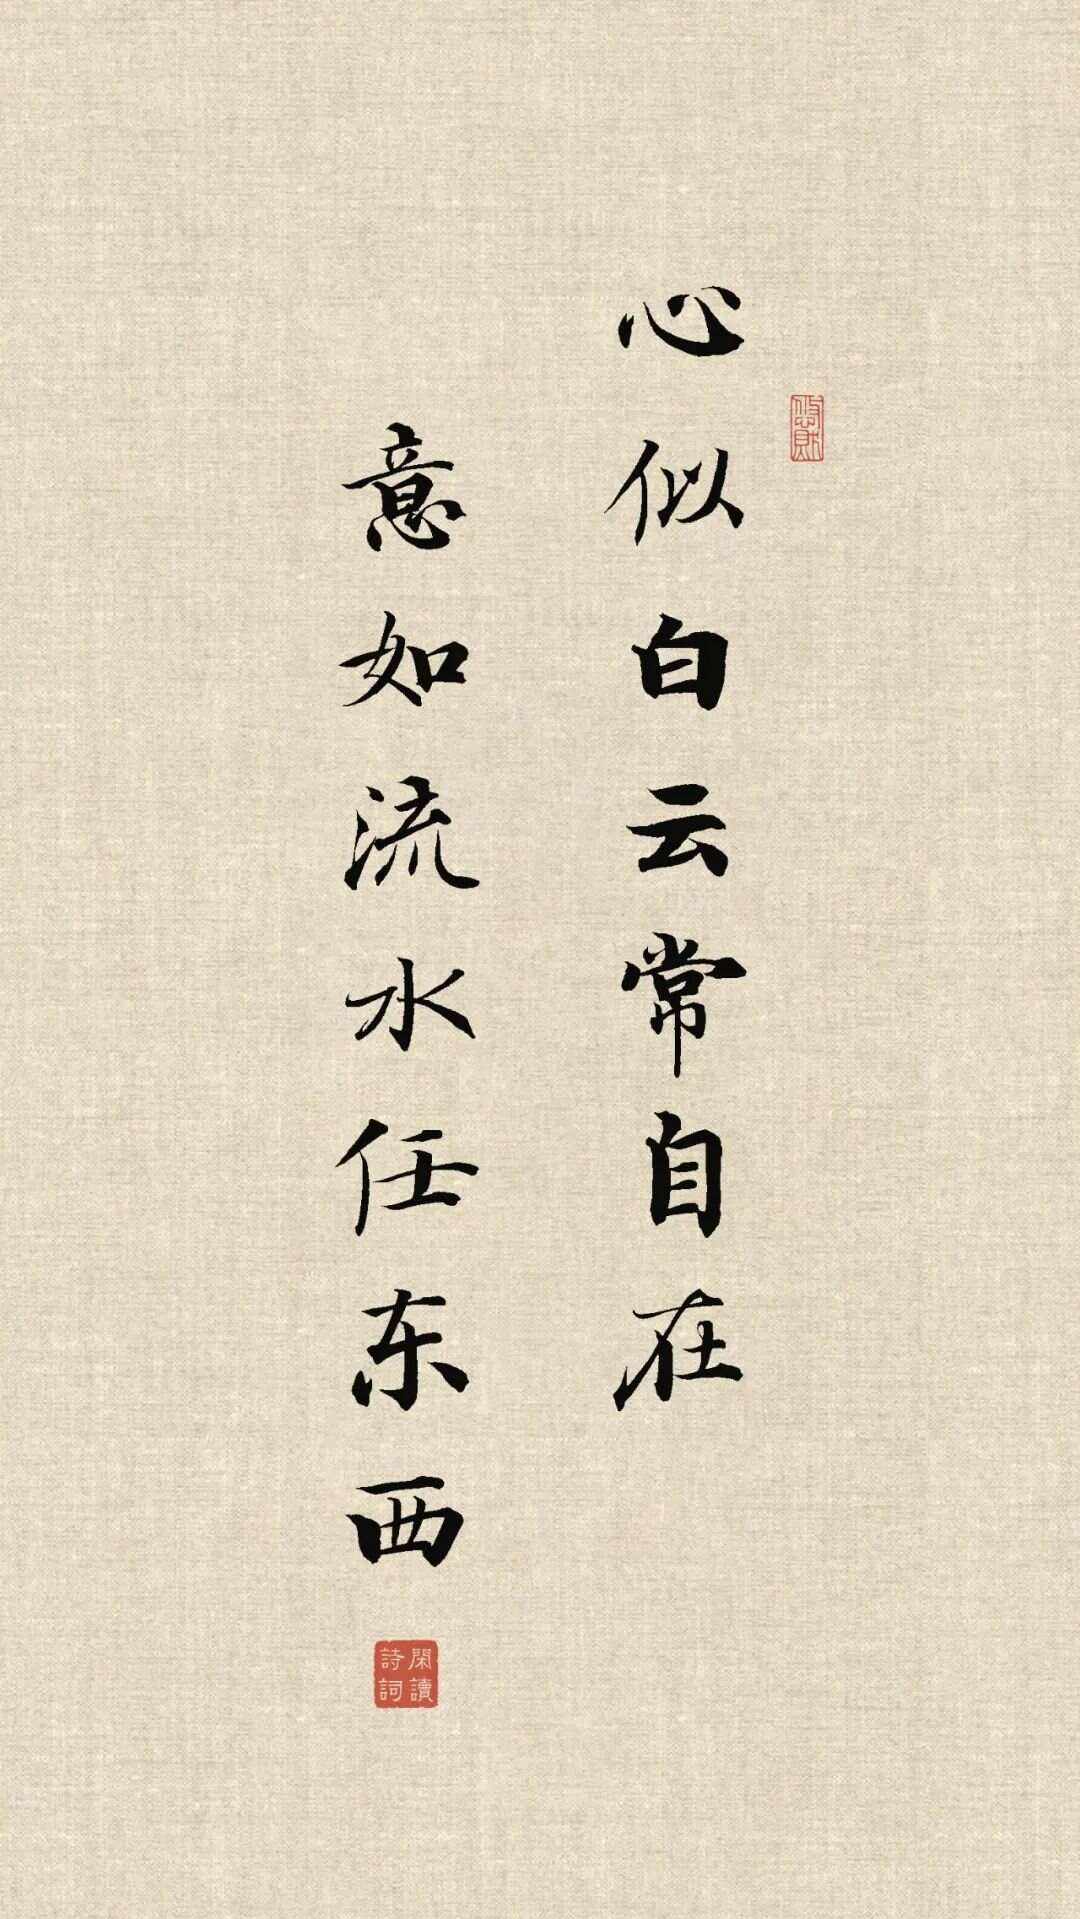 心似白云常自在
意如流水任东西
閑讀
詩詞